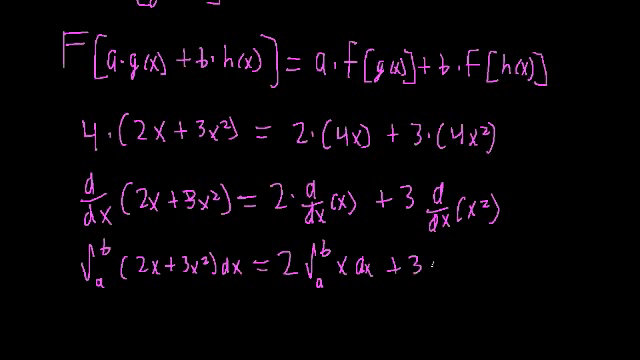 F[a·g(x) + b·h(x)] = a·F[g(x)] + b·F[h(x)]
4·(2x + 3x²) = 2·(4x) + 3·(4x²)
d/dx (2x + 3x²) = 2·d/dx (x) + 3 d/dx (x²)
∫ₐᵇ (2x + 3x²) dx = 2 ∫ₐᵇ x dx + 3